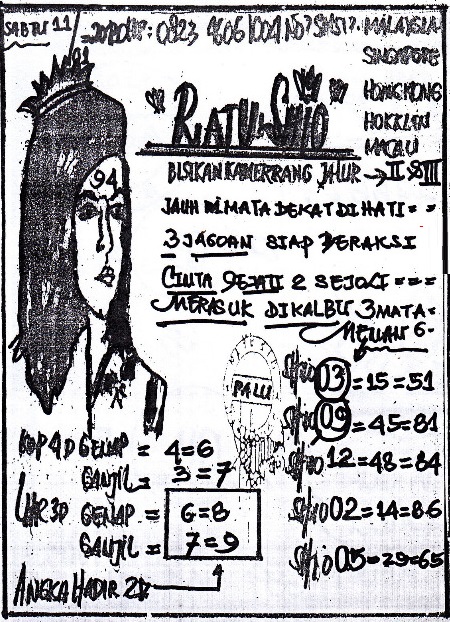 SABTU 11
MALAYSIA
SINGAPORE
HONGKONG
HOKKLIN
MACAU
94
RATU SHIO
BISIKAN KAMERRANG JALUR → II & III
JAUH DI MATA DEKAT DI HATI = =
3 JAGOAN SIAP BERAKSI
CINTA SEJATI 2 SEJOLI = = =
MERASUK DIKALBU 3 MATA =
PALU
SHIO 03 = 15 = 51
SHIO 09 = 45 = 81
SHIO 12 = 48 = 84
SHIO 02 = 14 = 86
SHIO 05 = 29 = 65
KOP 4D GENAP = 4 = 6
GANJIL = 3 = 7
EKOR 3D GENAP = 6 = 8
GANJIL = 7 = 9
ANGKA HADIR 2D